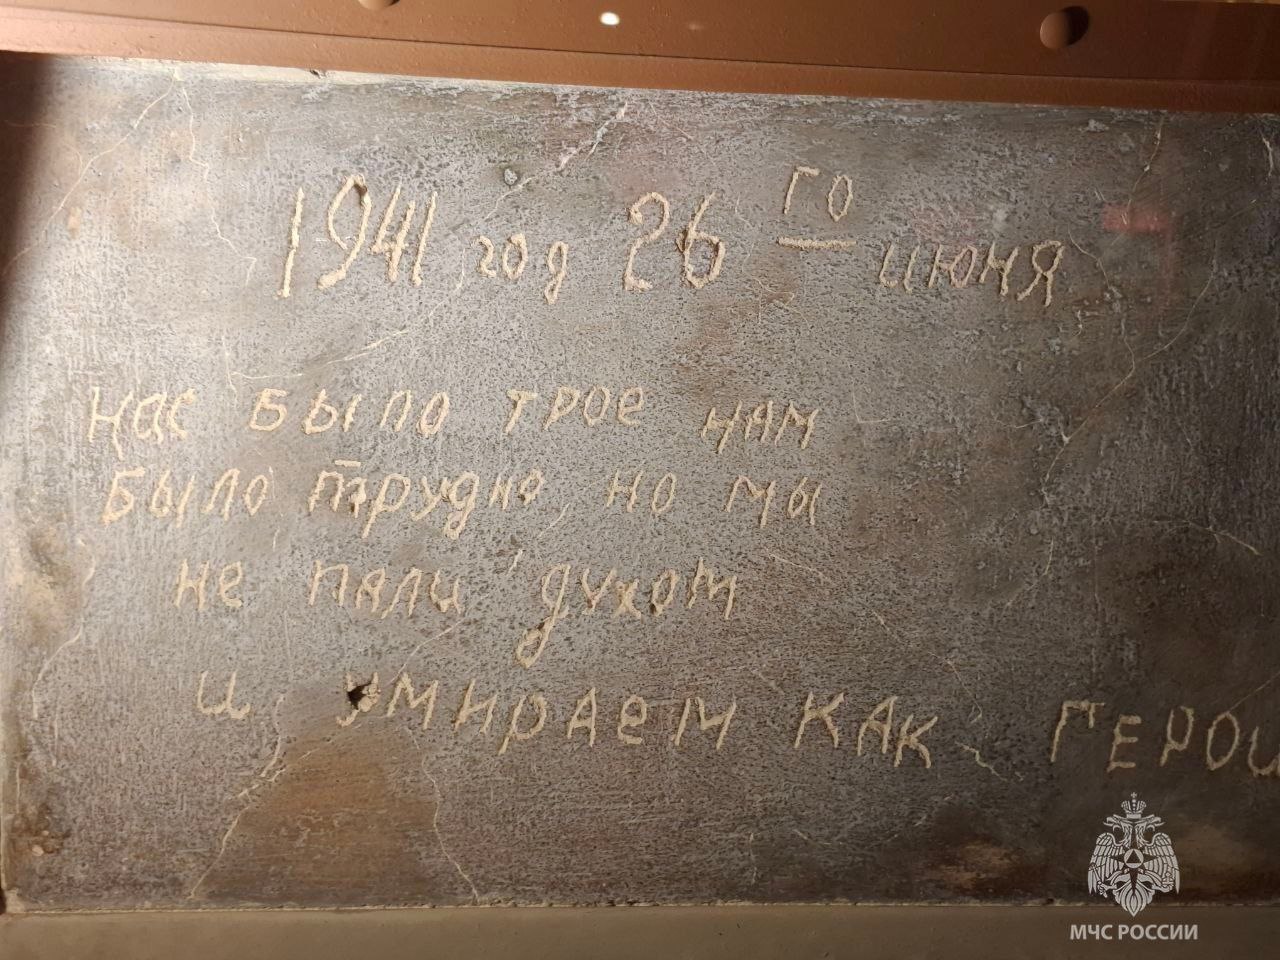 1941 год 26 го июня
нас было трое нам
было трудно, но мы
не пали духом
и умираем как герои
МЧС РОССИИ